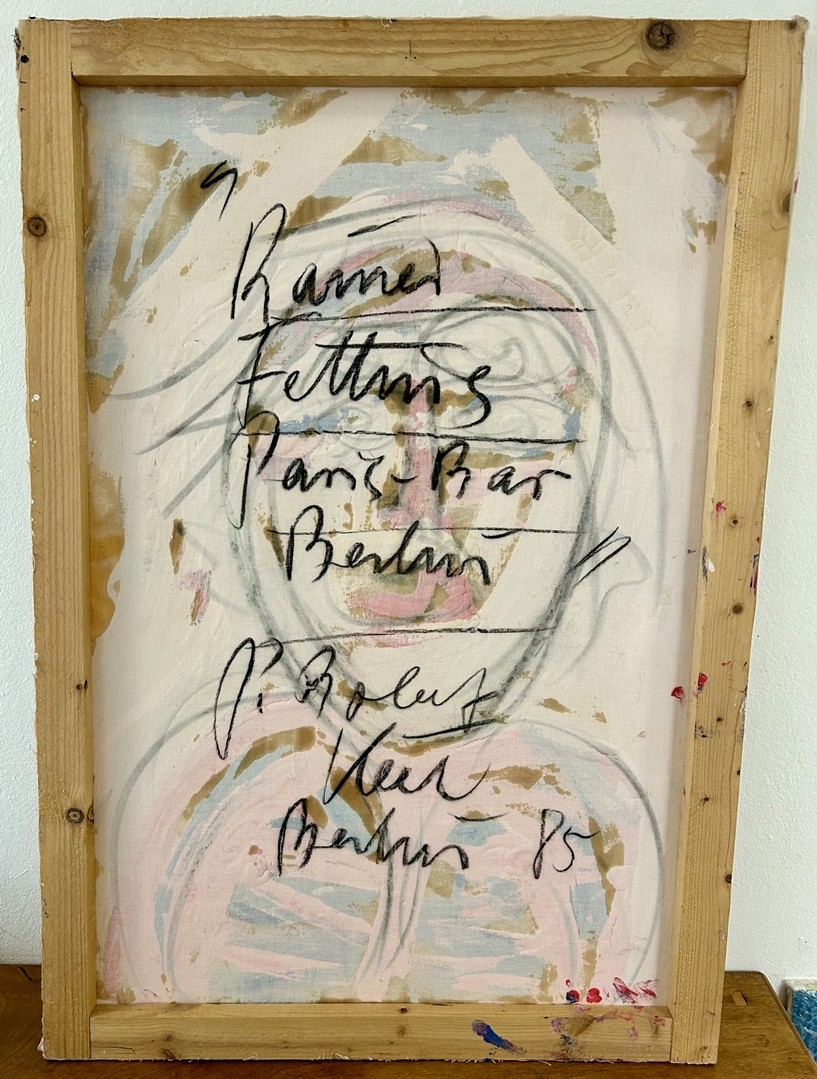 "Rainer
Fetting
Paris-Bar
Berlin"
P. Robert
Keil
Berlin 85